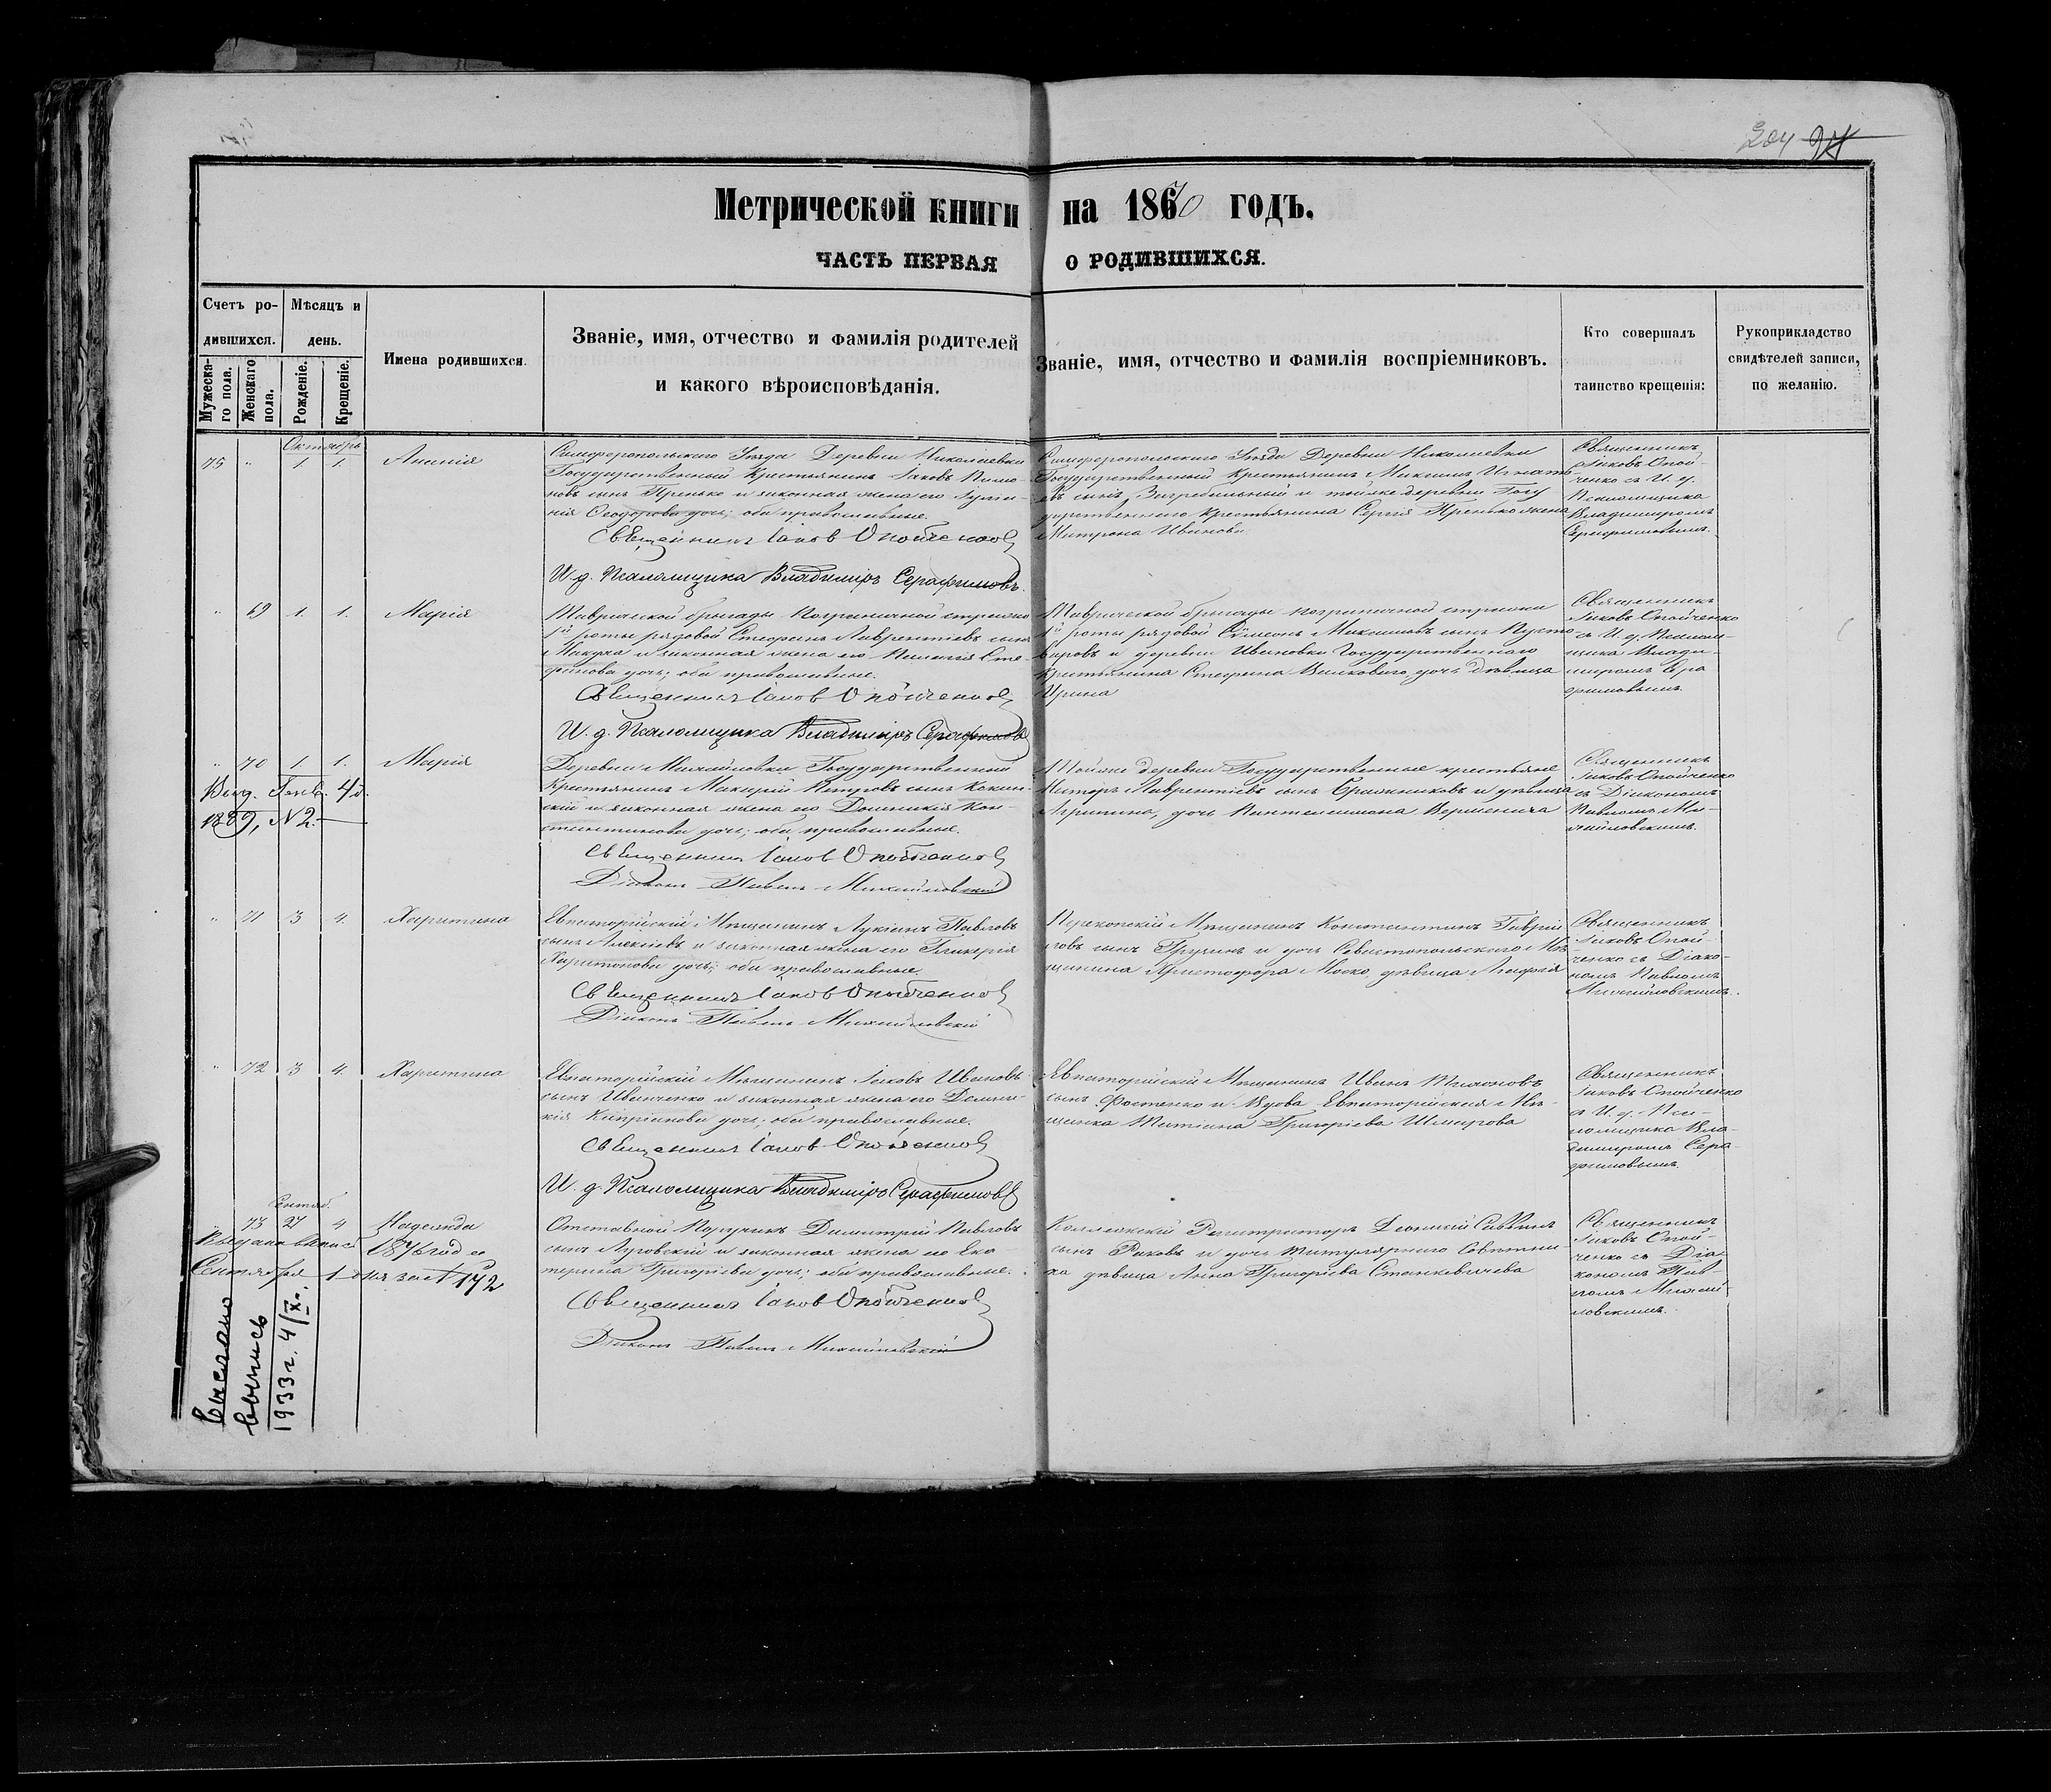 204 94
Метрической книги на 1870 годъ.
ЧАСТЬ ПЕРВАЯ О РОДИВШИХСЯ.
Счетъ ро-
дившихся.
Мѣсяцъ и
день.
Мужеска-
го пола.
Женскаго
пола.
Рожденіе.
Крещеніе.
Имена родившихся.
Званіе, имя, отчество и фамилія родителей
и какого вѣроисповѣданія.
Званіе, имя, отчество и фамилія воспріемниковъ.
Кто совершалъ
таинство крещенія:
Рукоприкладство
свидѣтелей записи,
по желанію.
Октябрь
75 " 1. 1. Ананія
Симферопольскаго Уѣзда Деревни Николаевки
Государственный Крестьянинъ Іаковъ
сынъ Пренько и законная жена его
Ѳеодорова дочь; оба православные.
Священникъ Іаковъ Опойченко
И. д. Псаломщика Владиміръ Серафимовъ.
Симферопольскаго Уѣзда Деревни Николаевки
Государственный Крестьянинъ Максимъ Игнать-
евъ сынъ и тойже деревни Госу
дарственнаго Крестьянина Сергія Пренько жена
Матрона Иванова
Священникъ
Іаковъ Опой-
ченко съ И. д.
Псаломщика
Владиміромъ
Серафимовымъ.
" 69 1. 1. Марія
Таврической бригады Пограничной стражи
1й роты рядовой Стефанъ Лаврентіевъ сынъ
и законная жена его Пелагія Сте-
фанова дочь; оба православные.
Священникъ Іаковъ Опойченко
И. д. Псаломщика Владиміръ Серафимовъ
Таврической бригады пограничной стражи
1й роты рядовой Сѵмеонъ Максимовъ сынъ Пусто
варовъ и деревни Ивановки Государственнаго
Крестьянина Стефана дочь дѣвица
Ирина
Священникъ
Іаковъ Опойченко
съ И. д. Псалом-
щика Влади-
міромъ Сера
фимовымъ.
" 70 1. 1. Марія
Выд. Генв. 4 д.
1889, N 2.
Деревни Михайловки Государственный
Крестьянинъ Макарій Петровъ сынъ
и законная жена его Домникія Кон-
стантинова дочь; оба православные.
Священникъ Іаковъ Опойченко
Діаконъ Павелъ Михайловскій
Тойже деревни Государственные крестьяне
Несторъ Лаврентіевъ сынъ Бражниковъ и дѣвица
Агрипина, дочь Пантелеимона
Священникъ
Іаковъ Опойченко
съ Діакономъ
Павломъ Ми-
хайловскимъ.
" 71 3 4. Харитина
Евпаторійскій Мѣщанинъ Лукіанъ Павловъ
сынъ Алексіевъ и законная жена его Гликерія
Харитонова дочь; оба православные.
Священникъ Іаковъ Опойченко
Діаконъ Павелъ Михайловскій
Перекопскій Мѣщанинъ Константинъ Гавріи
ловъ сынъ Грузинъ и дочь Севастопольскаго Мѣ-
щанина Христофора Моско, дѣвица
Священникъ
Іаковъ Опой-
ченко съ Діако-
номъ Павломъ
Михайловскимъ.
" 72 3 4. Харитина
Евпаторійскій Мѣщанинъ Іаковъ Ивановъ
сынъ Иванченко и законная жена его Домни-
кія Кипріанова дочь; оба православные.
Священникъ Іаковъ Опойченко
И. д. Псаломщика Владиміръ Серафимовъ
Евпаторійскій Мѣщанинъ Иванъ Тимоновъ
сынъ Фостенко и Вдова Евпаторійская Мѣ-
щанка Татіана Григоріева Шмырова
Священникъ
Іаковъ Опойченко
съ И. д. Пса-
ломщика Вла-
диміромъ Сера-
фимовымъ.
Сентяб.
" 73 27 4 Надежда
Выдана выпись 1876 года
Сентября 1 дня за N 172
Отставной Поручикъ Димитрій Павловъ
сынъ и законная жена его Ека-
терина Григоріева дочь; оба православные.
Священникъ Іаковъ Опойченко
Діаконъ Павелъ Михайловскій
Коллежскій Регистраторъ Саввинъ
сынъ Рыковъ и дочь титулярнаго Совѣтни-
ка дѣвица Анна Григоріева Станкевичева
Священникъ
Іаковъ Опой-
ченко съ Діа-
кономъ Пав-
ломъ Михай-
ловскимъ.
Выслано
выпись
1933 г. 4/X.